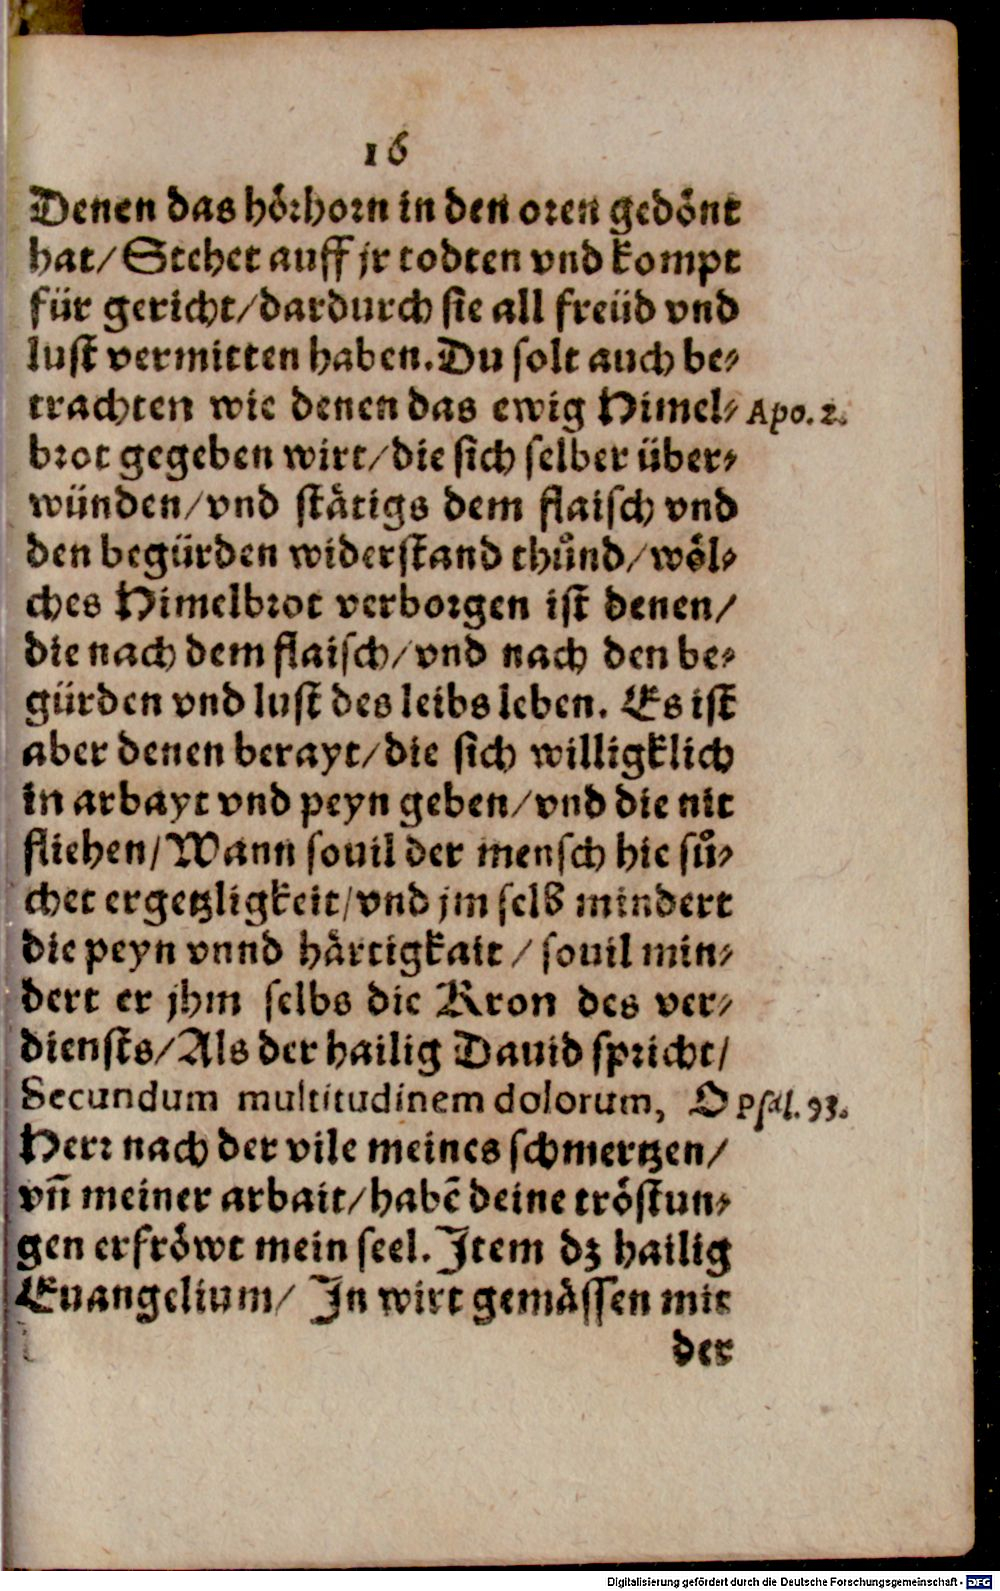 16
Denen das hoͤrhorn in den oren gedoͤnt
hat/Stehet auff jr todten vnd kompt
für gericht/dardurch sie all freüd vnd
lust vermitten haben. Du solt auch be⸗
trachten wie denen das ewig Himel⸗ Apo. 2.
brot gegeben wirt/die sich selber über⸗
wünden/vnd staͤtigs dem flaisch vnd
den begürden widerstand thuͦnd/woͤl⸗
ches Himelbrot verborgen ist denen/
die nach dem flaisch/vnd nach den be⸗
gürden vnd lust des leibs leben. Es ist
aber denen berayt/die sich willigklich
in arbayt vnd peyn geben/vnd die nit
fliehen/Wann souil der mensch hie suͦ⸗
chet ergetzligkeit/vnd jm selb mindert
die peyn vnnd haͤrtigkait/souil min⸗
dert er jhm selbs die Kron des ver⸗
diensts/Als der hailig Dauid spricht/
Secundum multitudinem dolorum, O Psal. 93.
Herr nach der vile meines schmertzen/
vn̄ meiner arbait/habē deine troͤstun⸗
gen erfroͤwt mein seel. Item dz hailig
Euangelium/ In wirt gemaͤssen mit
der
Digitalisierung gefördert durch die Deutsche Forschungsgemeinschaft - DFG